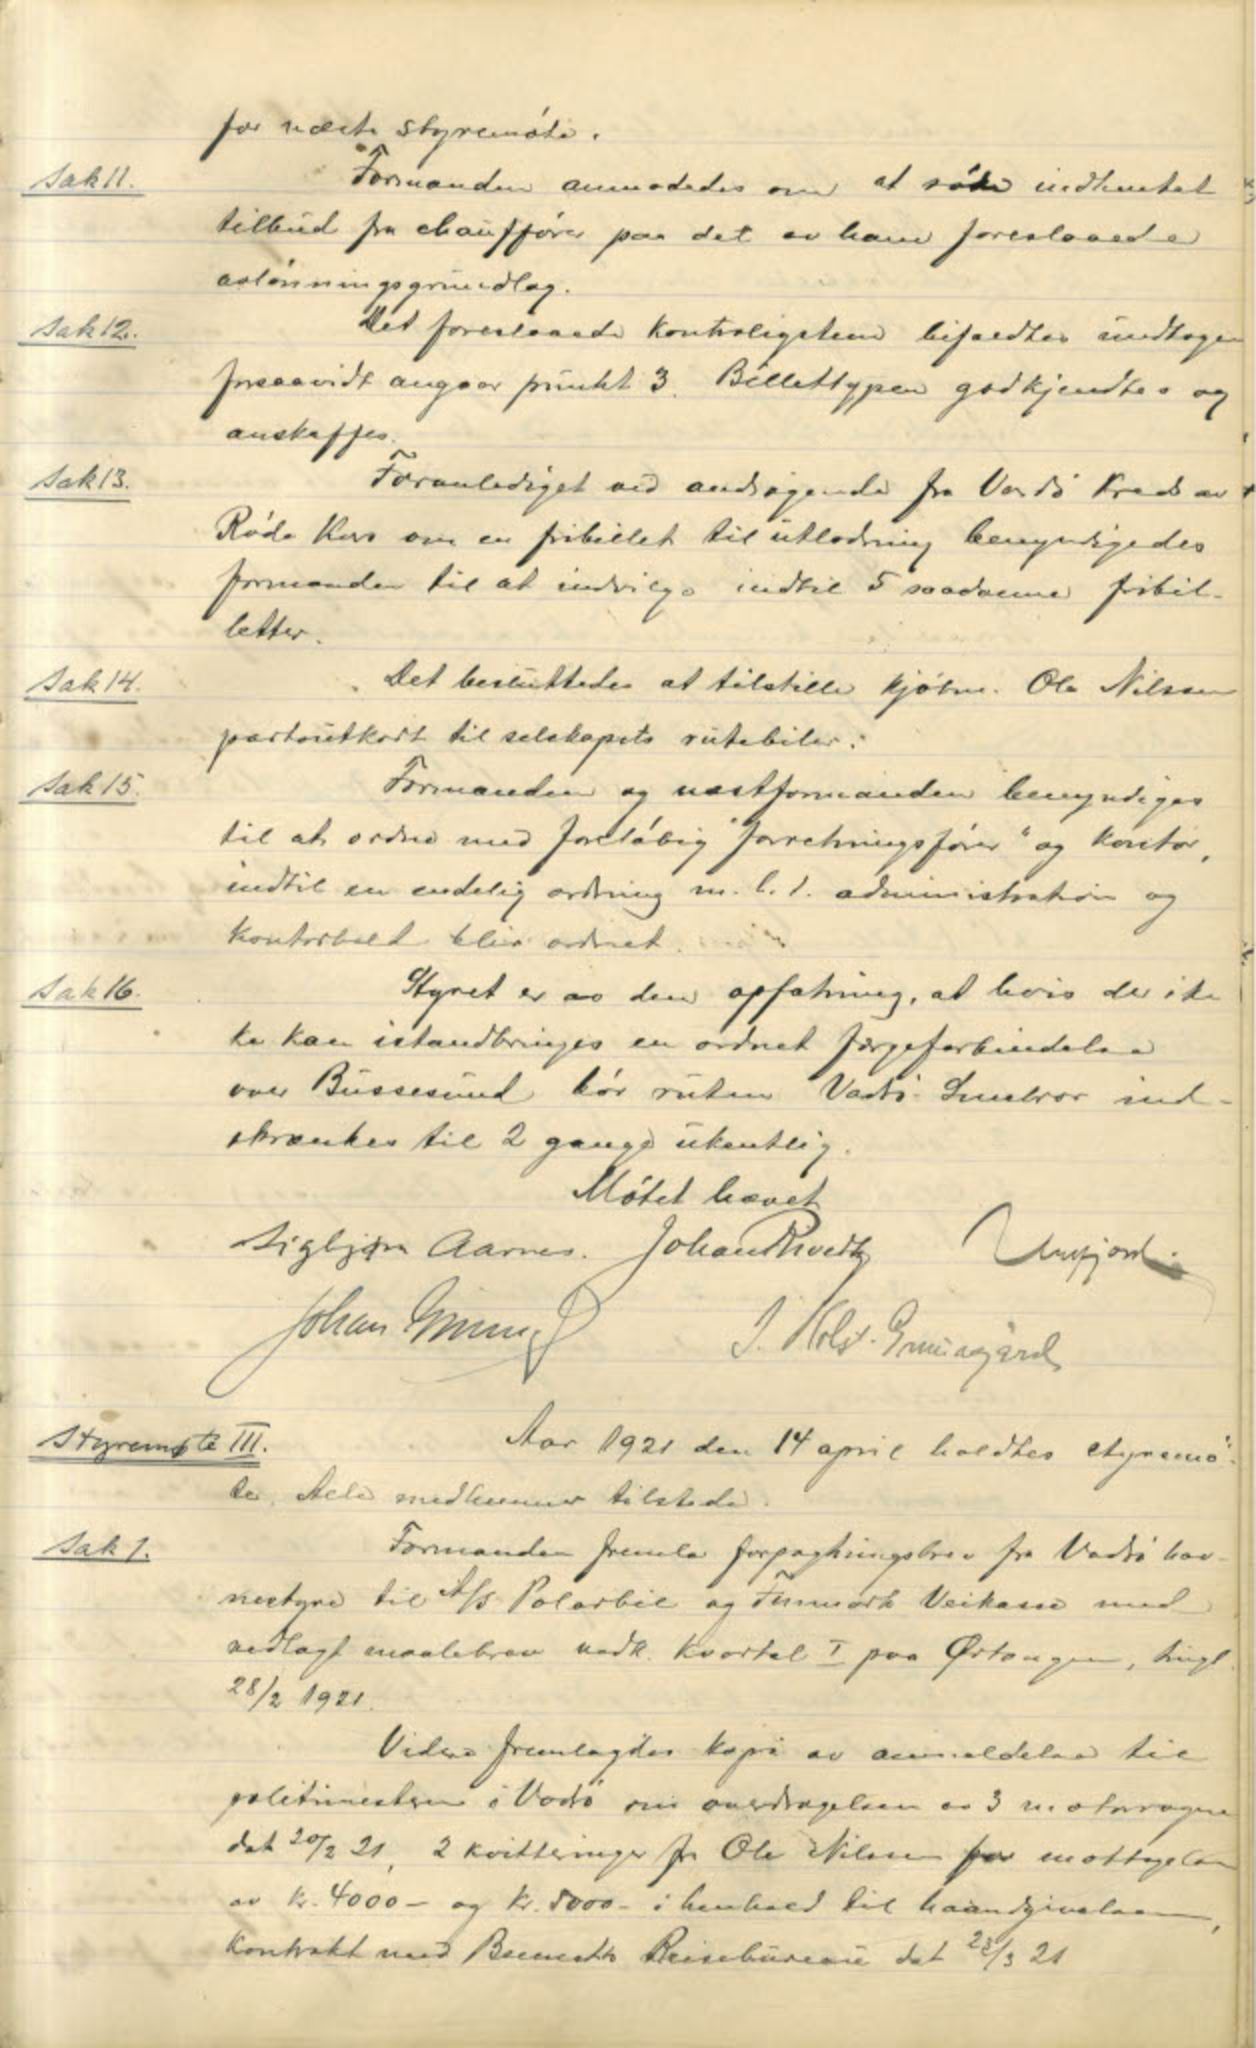 for næste styremöte.
Sak 11. Formanden anmodedes om at söke indhentet
tilbud fra chauffører paa det av ham foreslaaede
avlönningsgrundlag.
Sak 12. Det foreslaaede kontrolsystem bifaldtes undtagen
forsaavidt angaar punkt 3. Billettypen godkjendtes og
anskaffes.
Sak 13. Foranlediget ved andragende fra Vardö Kreds av
Röde Kors om en fribillet til utlodning bemyndigedes
formanden til at indvilge indtil 5 saadanne fribil-
letter.
Sak 14. Det besluttedes at tilstille kjöbm. Ole Nilssen
partoutkort til selskapets rutebiler.
Sak 15. Formanden og næstformanden bemyndiges
til at ordne med foreløbig "forretningsfører" og kontor,
indtil en endelig ordning m. h. t. administration og
kontorhold blir ordnet.
Sak 16. Styret er av den opfatning, at hvis der ik
ke kan istandbringes en ordnet færgeforbindelse
over Bussesund bör ruten Vadsö - Smelror ind-
skrænkes til 2 gange ukentlig.
Mötet hævet
Sigbjørn Aarnes. Johan
Johan J. Holst
Styremøte III. Aar 1921 den 14 april holdtes styremö-
te. Alle medlemmer tilstede.
Sak 1. Formanden fremla forpagtningsbrev fra Vadsö hav-
nestyre til A/S Polarbil og Finmark Veikasse med
vedlagt maalebrev vedk. Kvartal I paa Ørtangen, tingl.
28/2 1921.
Videre fremlagdes kopi av anmeldelse til
politimesteren i Vadsö om overdragelsen av 3 motorvogne
dat 20/2 21, 2 kvitteringer fra Ole Nilssen for mottagelsen
av kr. 4000 – og kr. 5000 – i henhold til haandgivelsen,
kontrakt med Bennetts Reisebureau dat 22/3 21